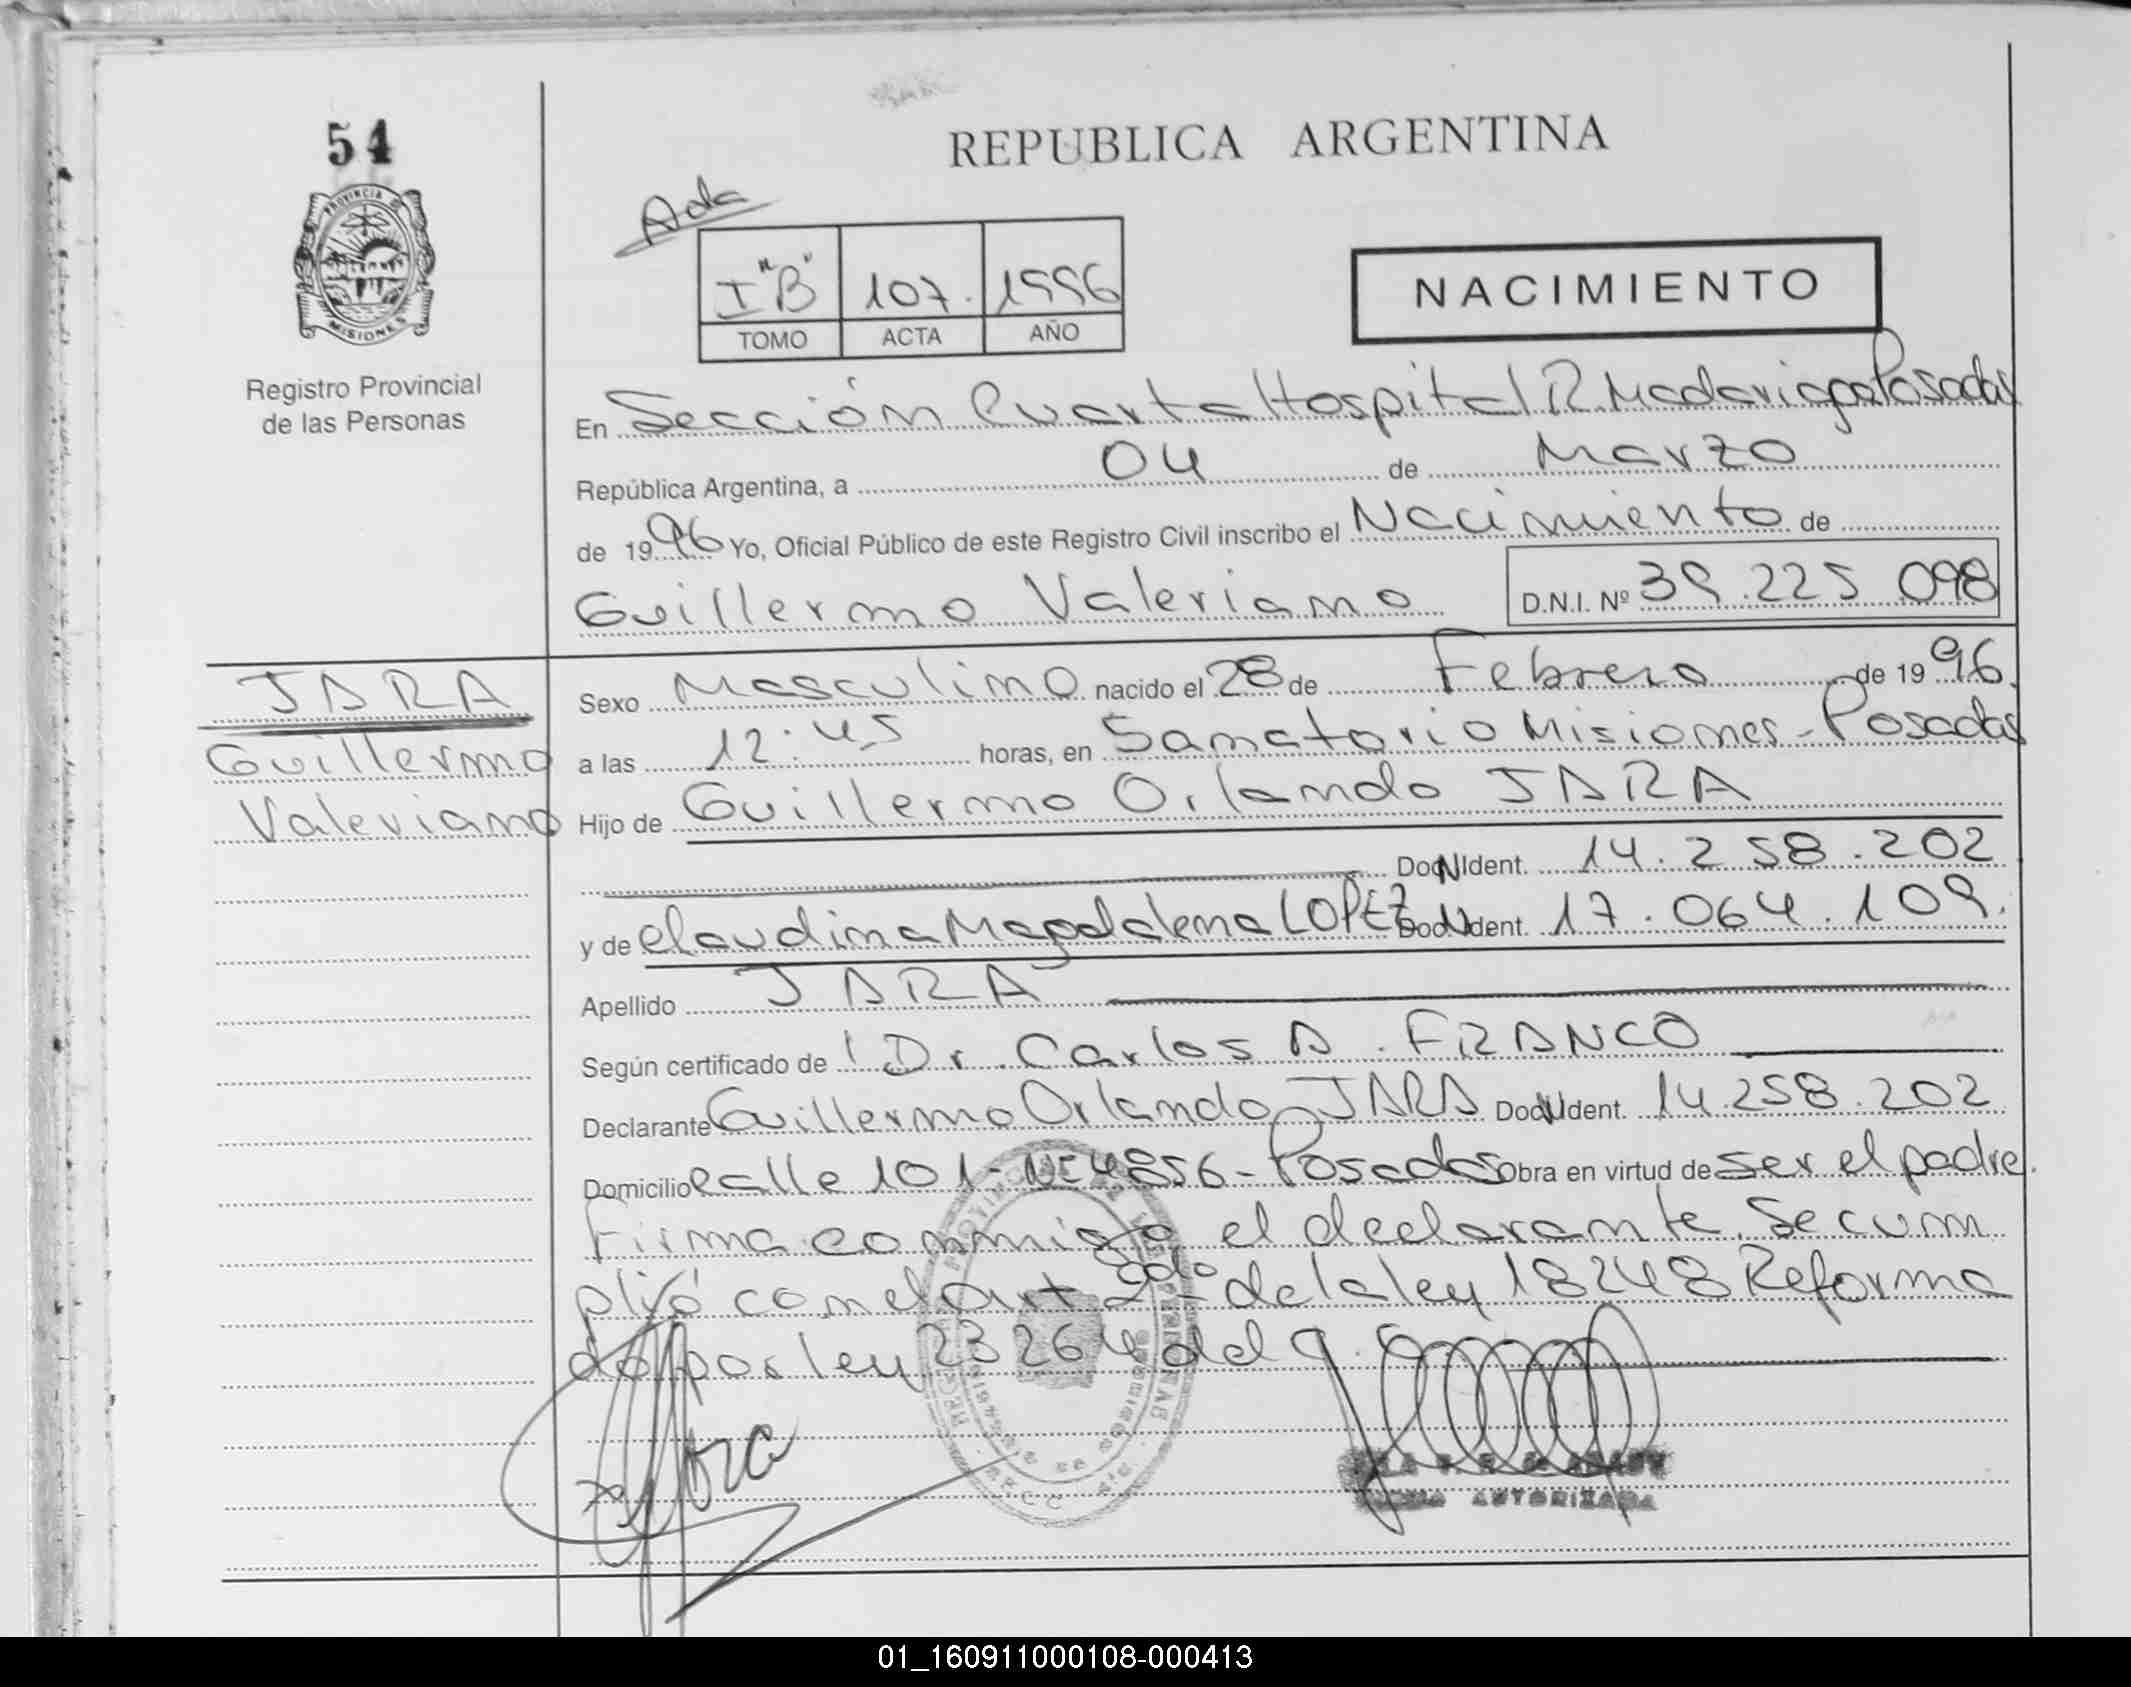 54
PROVINCIA DE
MISIONES
Registro Provincial
de las Personas
REPUBLICA ARGENTINA
Ada
I "B" 107. 1996
TOMO ACTA AÑO
NACIMIENTO
En Sección Cuarta Hospital R. Madariaga Posadas
República Argentina, a 04 de Marzo
de 1996 Yo, Oficial Público de este Registro Civil inscribo el Nacimiento de
Guillermo Valeriano D.N.I. Nº 39.225 098
JARA
Guillermo
Valeriano
Sexo Masculino nacido el 28 de Febrero de 1996.
a las 12:45 horas, en Sanatorio Misiones - Posadas
Hijo de Guillermo Orlando JARA
Doc N Ident. 14.258.202
y de Claudina Magdalena LOPEZ Doc N Ident. 17.064.109.
Apellido JARA
Según certificado de Dr. Carlos A. FRANCO
Declarante Guillermo Orlando JARA Doc N Ident. 14.258.202
Domicilio Calle 101 - Nº 4856 - Posadas Obra en virtud de ser el padre.
Firma conmigo el declarante. Se cum
plió con el art 2º de la ley 18248 Reforma
do por ley 23264 del
AUTORIZADA
01_160911000108-000413